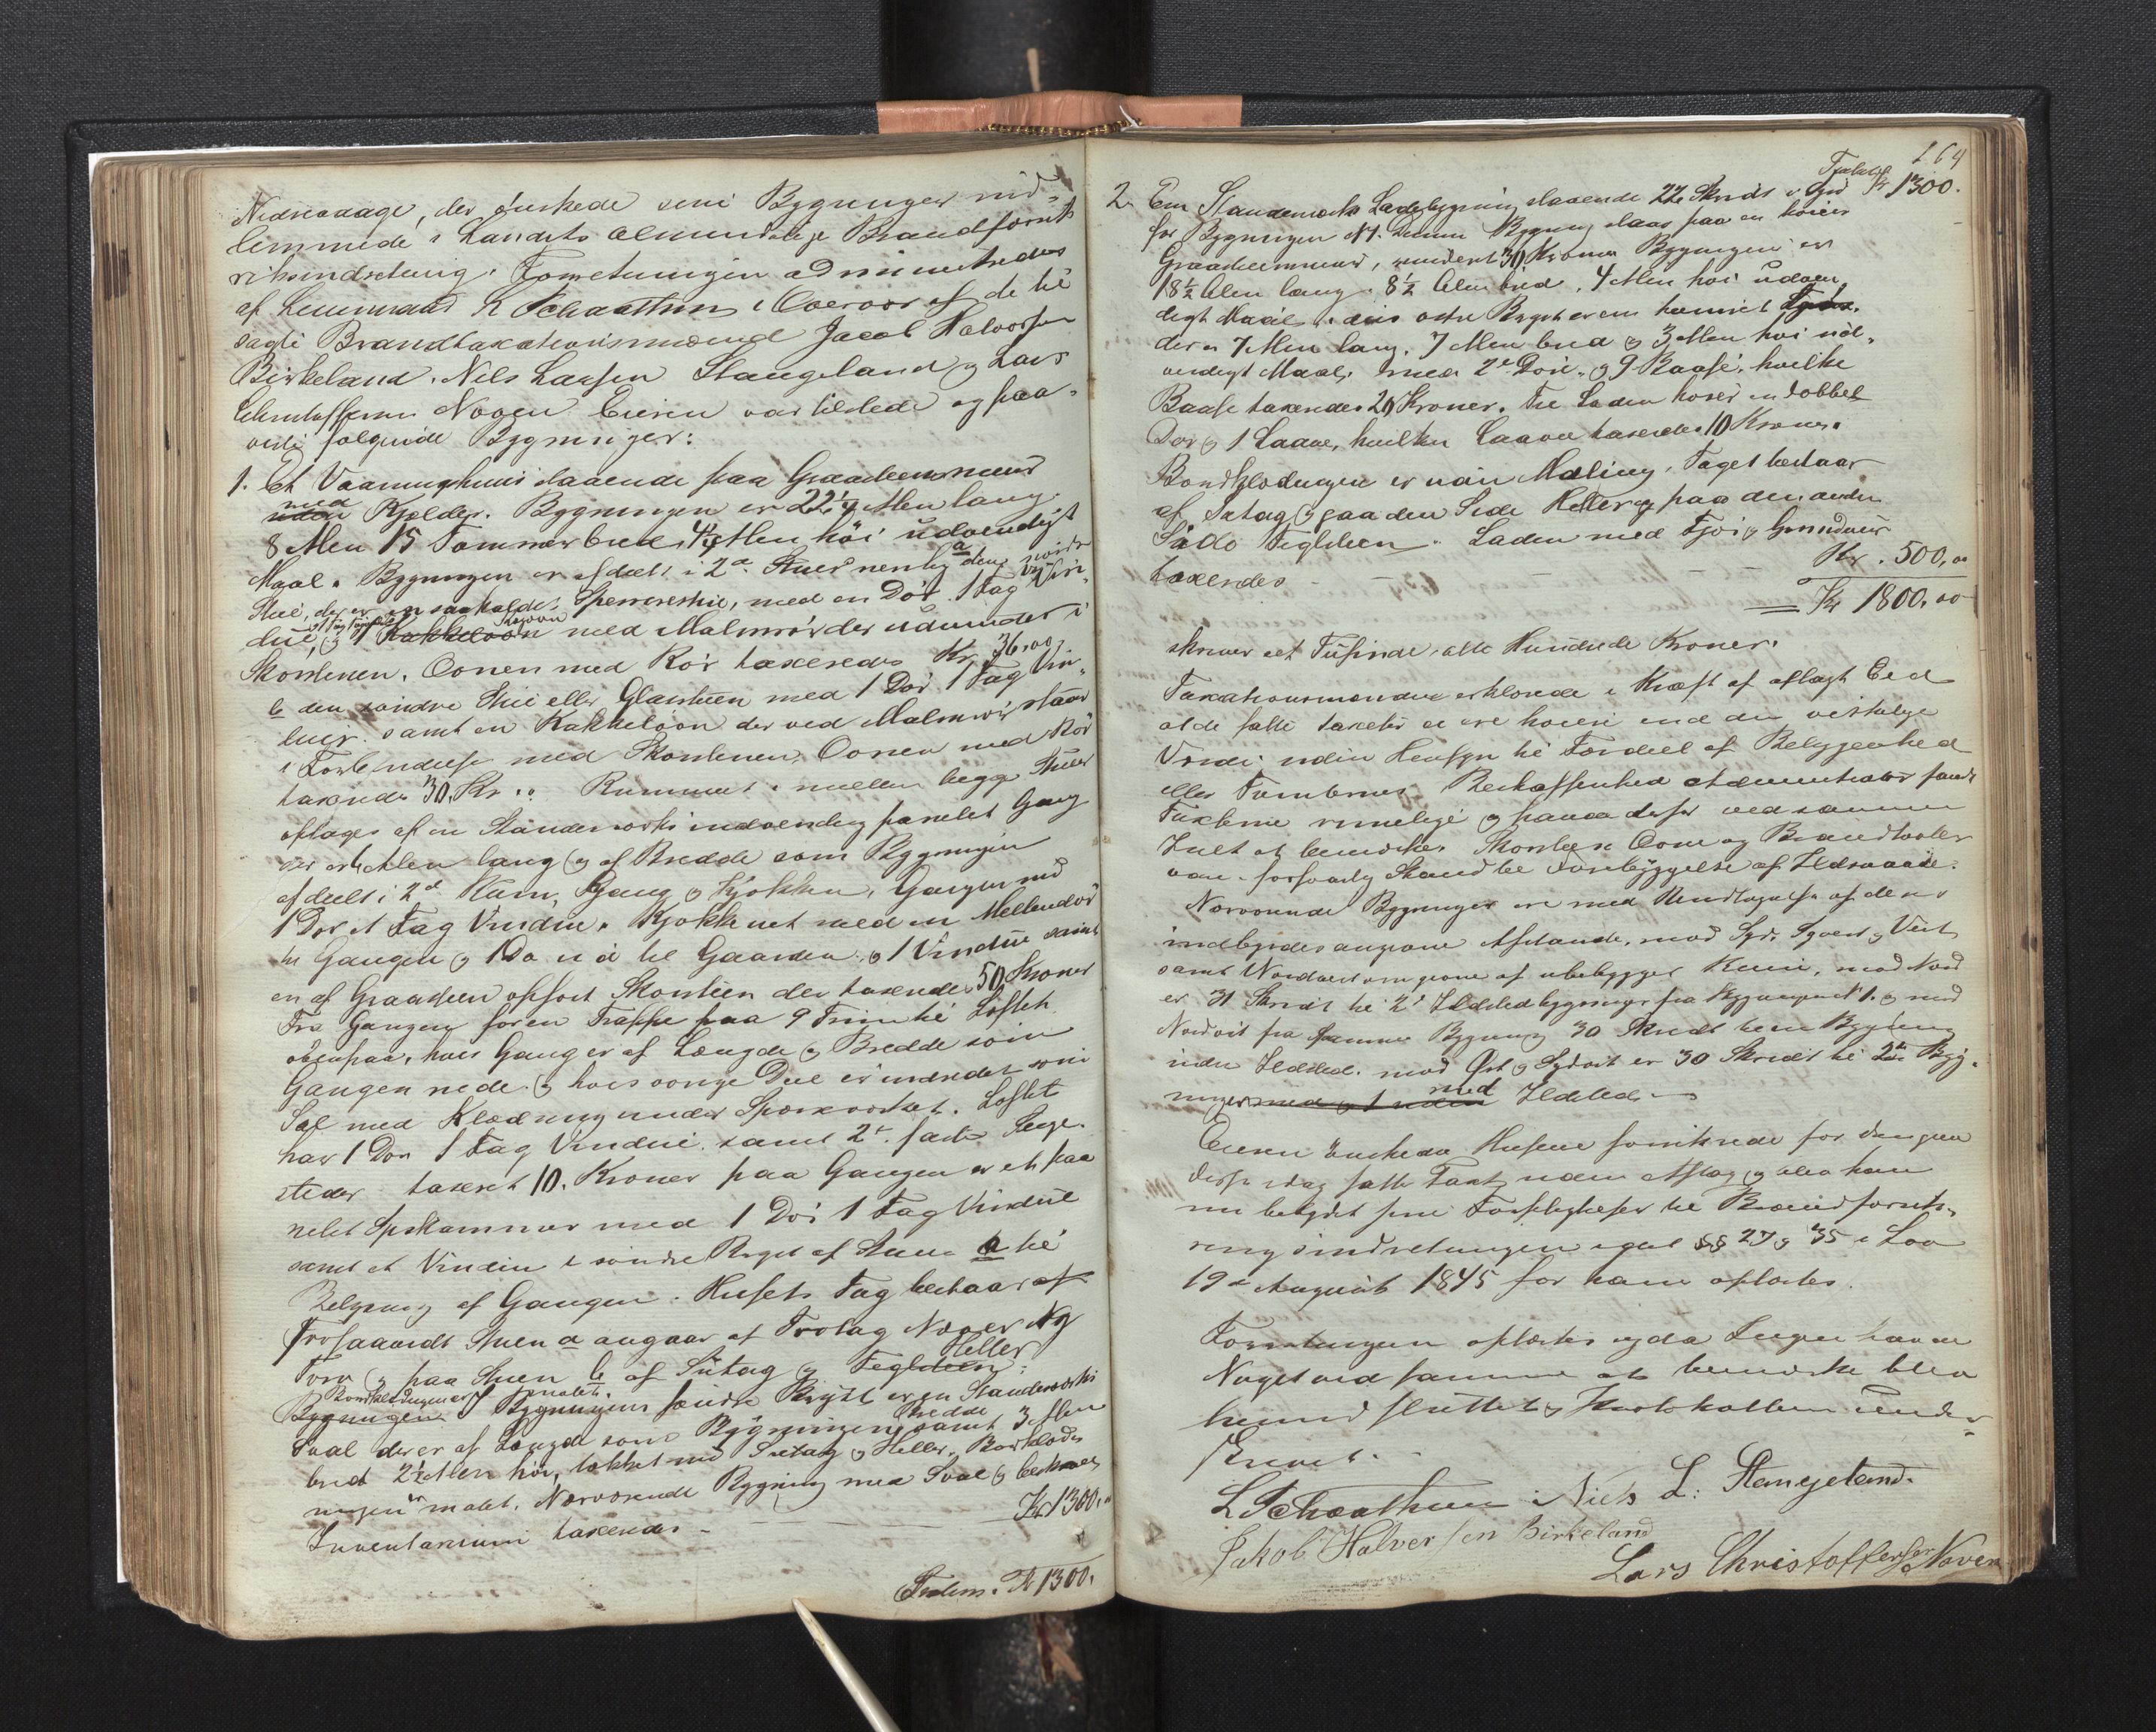 Nedrevaage, der ønskede sine Bygninger ind-
lemmede i Landets almindelige Brandforsik
ringsindretning. Forretningen administreredes
af Lensmand L Schaathun i Overvær af de til
sagte Brandtaxationsmænd Jacob Halvorsen
Birkeland, Nils Larsen Stangeland og Lars
Christoffersen Nogen Eieren var tilstede og paa-
viste følgende Bygninger:
1. Et Vaaningshuus staaende paa Graasteensmuur
med
uden Kjelder. Bygningen er 22 1/4 Alen lang
8 Alen 15 Tommer bred, 4 1/4 Alen høi udvendigt
Maal. Bygningen er afdeelt i 2de Stuer nemlig a den nordre
Stue, der er en saakaldet Sperrestue, med en Dør 1 Fag Vin-
due, og 1 Kakkeloon med Malmrør der udmunder i
Skorstenen. Oonen med Rør taxeredes Kr 36,00
b den søndre Stue eller Glasstuen med 1 Dør 1 Fag Vin-
duer samt en Kakkeloon der ved Malmrør staar
i Forbindelse med Skorstenen. Oonen med Rør
taxeredes 30 Kr.. Rummet mellem begge Stuer
optages af en Standerværks indvendig panelet Gang
der er Alen lang og af Bredde som Bygningen
afdeelt i 2de Rum, Gang og Kjøkken, Gangen med
1 Dør 1 Fag Vindue. Kjøkkenet med en Mellemdør
til Gangen og 1 Dør ud til Gaarden og 1 Vindue samt
en af Graasteen opført Skorsteen der taxeredes 50 Kroner
Fra Gangen fører en Trappe paa 9 Trin til Loftet
ovenpaa, hvis Gang er af Længde og Bredde som
Gangen nede og hvis øvrige Deel er indredet som
Sal med Klædning under Sperreværket. Loftet
har 1 Dør 1 Fag Vindue samt 2de faste Senge-
steder taxeret 10 Kroner paa Gangen er et pa
nelet Spiskammer med 1 Dør 1 Fag Vindue
samt et Vindue i søndre Røgst af Stuen a til
Belysning af Gangen. Husets Tag bestaar af
Troe saavidt Stuen a angaar af Trotag Næver og
Heller
Torv og paa Stuen b af Sutag og Teglsteen.
Bordklædningen er malet.
Bygningen I Bygningens søndre Røgst er en Standerværks
Sval der er af Længde som Bygningens Bredde samt 3 Alen
bred 2 1/2 Alen høi, tækket med Sutag og Heller, Bordklæd
ningen er malet. Nærværende Bygning med Sval og beskrevet
Inventarium taxeredes - Kr 1300,00
Trslm. Kr 1300.
264
Trslated Kr 1300.
2. En Standerværks Ladebygning staaende 22 Skridt i Syd
for Bygningen N 1. Denne Bygning staar paa en høiere
Graasteensmuur, vurderet 30 Kroner Bygningen er
18 1/2 Alen lang. 8 1/2 Alen bred, 4 Alen høi udven-
digt Maal. I dens østre Røgst er en tømret Fjøs,
der er 7 Alen lang, 7 Alen bred og 3 Alen høi ud-
vendigt Maal, med 2de Døre og 9 Baase, hvilke
Baase taxeredes 20 Kroner. Til Laden hører en dobbel
Dør og 1 Laave, hvilken Laave taxeredes 10 Kroner.
Bordklædningen er uden Maling. Taget bestaar
af Sutag og paa den Side Heller og paa den anden
Side Teglsteen. Laden med Fjøs og Grundmuur
taxeredes - - - - Kr. 500,00
= Kr 1800,00
skriver eet Tusinde, otte Hundrede Kroner.
Taxationsmændene erklærede i Kraft af aflagt Eed
at de satte Taxter ei ere høiere end den virkelige
Værdi uden Hensyn til Fordeel af Beliggenhed
eller Tomternes Beskaffenhed Administrator fandt
Taxterne rimelige og havde derfor ved samme
Intet at bemærke. Skorsteen Oone og Brandbøtler
var i forsvarlig Stand til Forebyggelse af Ildsvaade.
Nærværende Bygninger ere med Undtagelse af deres
indbyrdes angivne Afstande, mod Syd, Sydvest og Vest
samt Nordvest omgivne af ubebygget Rum, mod Nord
er 31 Skridt til 2de Ildstedbygninger fra Bygningen N 1. og mod
Nordost fra samme Bygning 30 Skridt til en Bygning
uden Ildsted. mod Øst og Sydost er 30 Skridt til 2de Byg-
med
ninger med og 1 uden Ildsted.
Eieren ønskede Husene forsikrede for den paa
disse idag satte Taxt, uden Afslag og blev ham
nu betydet sine Forpligtelser til Brandforsik-
ringsindretningen efter §§ 27 og 35 i Lov
19de August 1845 for ham oplæstes.
Forretningen oplæstes og da Ingen havde
Noget ved samme at bemærke blev
hermed sluttet og Protokollen under-
skrevet.
L Schaathun Niels L: Stangeland.
Jakob Halversen Birkeland
Lars Christoffersen Noven